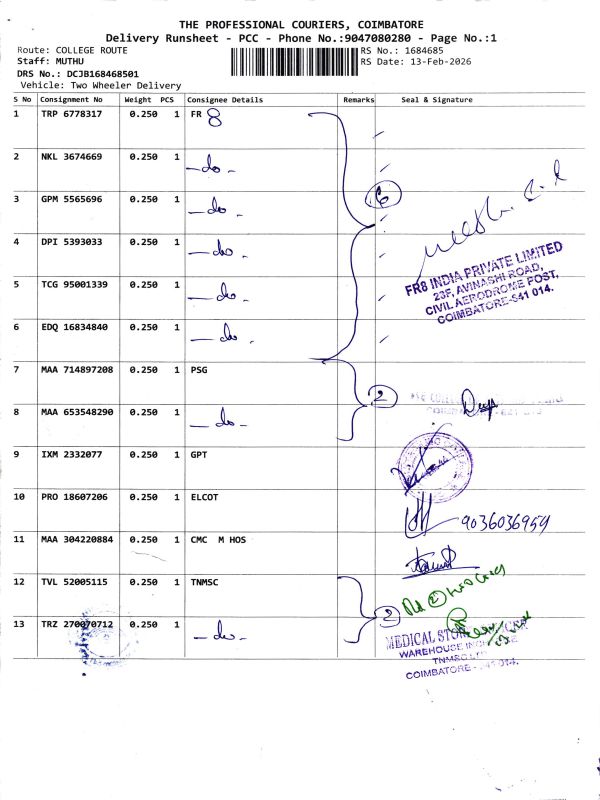 THE PROFESSIONAL COURIERS, COIMBATORE
Delivery Runsheet - PCC - Phone No.:9047080280 - Page No.:1
Route: COLLEGE ROUTE
RS No.: 1684685
Staff: MUTHU
RS Date: 13-Feb-2026
DRS No.: DCJB168468501
Vehicle: Two Wheeler Delivery
S No Consignment No Weight PCS Consignee Details Remarks Seal & Signature
1 TRP 6778317 0.250 1 FR 8
2 NKL 3674669 0.250 1 -do-
6
3 GPM 5565696 0.250 1 -do-
4 DPI 5393033 0.250 1 -do-
FR8 INDIA PRIVATE LIMITED
23F, AVINASHI ROAD,
CIVIL AERODROME POST,
COIMBATORE-641 014.
5 TCG 95001339 0.250 1 -do-
6 EDQ 16834840 0.250 1 -do-
7 MAA 714897208 0.250 1 PSG
2
8 MAA 653548290 0.250 1 -do-
9 IXM 2332077 0.250 1 GPT
10 PRO 18607206 0.250 1 ELCOT
9036036959
11 MAA 304220884 0.250 1 CMC M HOS
12 TVL 52005115 0.250 1 TNMSC
2
13 TRZ 270070712 0.250 1 -do-
MEDICAL
WAREHOUSE
TNMSC
COIMBATORE - 641 014.